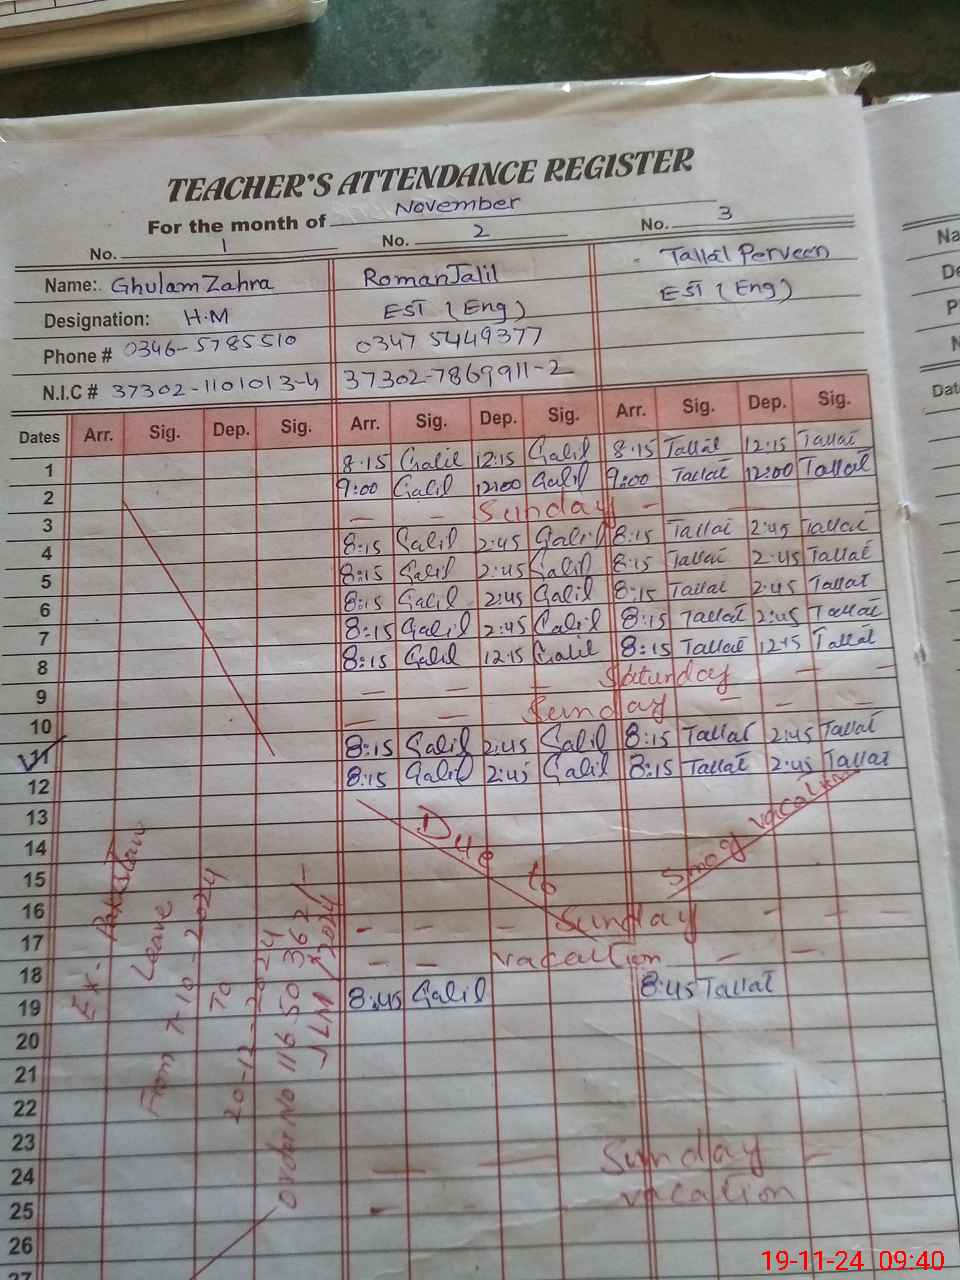 TEACHER'S ATTENDANCE REGISTER
For the month of November
No. 1 No. 2 No. 3
Name: Ghulam Zahra Roman Jalil Tallat Perveen
Designation: H.M EST (Eng) EST (Eng)
Phone # 0346-5785510 0347 5449377
N.I.C # 37302-1101013-4 37302-7869911-2
Dates Arr. Sig. Dep. Sig. Arr. Sig. Dep. Sig. Arr. Sig. Dep. Sig.
1 8:15 Galil 12:15 Galil 8:15 Tallat 12:15 Tallat
2 9:00 Galil 12:00 Galil 9:00 Tallat 12:00 Tallat
3 — — Sunday —
4 8:15 Galil 2:45 Galil 8:15 Tallat 2:45 Tallat
5 8:15 Galil 2:45 Galil 8:15 Tallat 2:45 Tallat
6 8:15 Galil 2:45 Galil 8:15 Tallat 2:45 Tallat
7 8:15 Galil 2:45 Galil 8:15 Tallat 2:45 Tallat
8 8:15 Galil 12:15 Galil 8:15 Tallat 12:15 Tallat
9 — — — Saturday — —
10 — — Sunday — — —
11 8:15 Galil 2:45 Galil 8:15 Tallat 2:45 Tallat
12 8:15 Galil 2:45 Galil 8:15 Tallat 2:45 Tallat
13
14 Due to Smog vacation
15
16
17 — — — Sunday — — —
18 — — vacation — —
19 8:45 Galil 8:45 Tallat
20
21
22
23
24 — — Sunday —
25 — vacation
26
27
Ex- Pakistan
Leave
From 7-10-2024
To
20-12-2024
Order No 116 50 362/-
/2024
Na
De
P
N
Dat
19-11-24 09:40